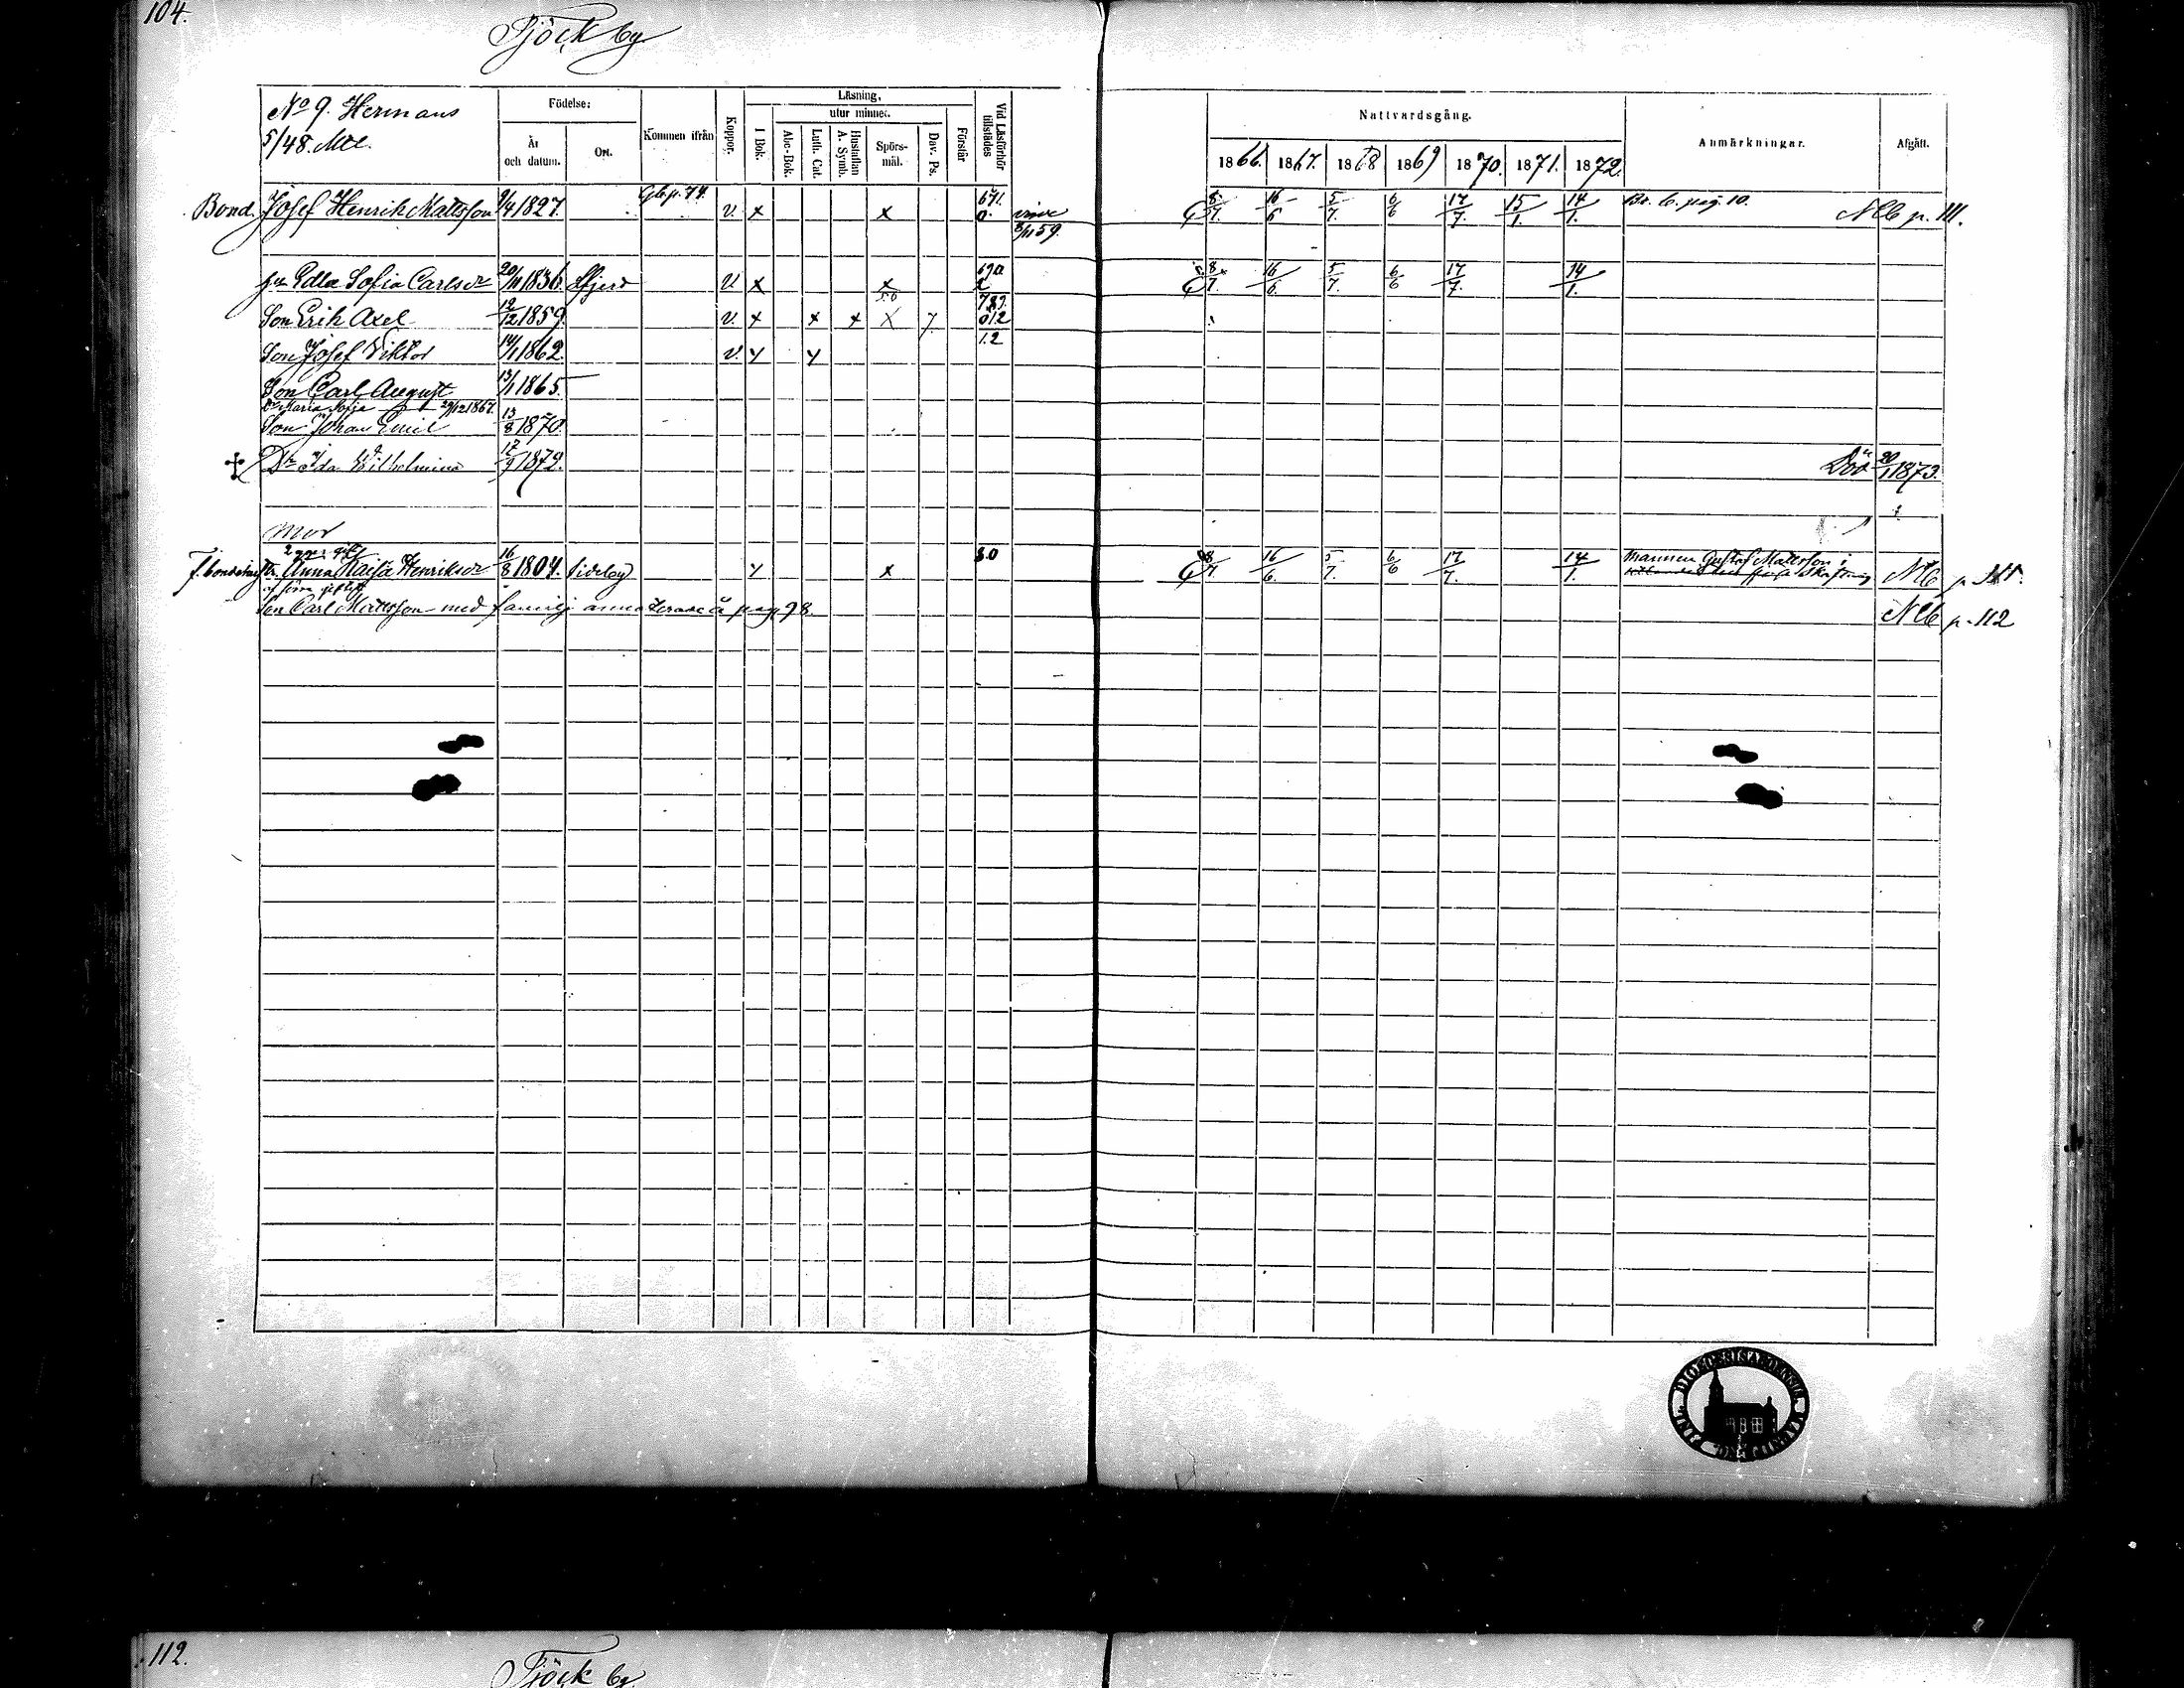 104.
Tjöck by
No 9. Hermans
5/48. Mtl.
Födelse:
År och datum.
Ort.
Kommen ifrån
Koppor.
Läsning,
utur minnet.
I Bok.
Abc-Bok.
Luth. Cat.
Hustaflan A. Symb.
Spörs-mål.
Dav. Ps.
Förstår
Vid Läsförhör tillstädes
Nattvardsgång.
1866. 1867. 1868 1869 1870. 1871. 1872.
Anmärkningar.
Afgått.
Bond. Josef Henrik Mattsson 9/4 1827. Gb. p. 74. v. x x 671. 0. 5/7. 16/6 5/7. 6/6 17/7. 15/1. 14/1. Br. b. pag. 10. NCb p. 111.
8/11 59.
hu Edla Sofia Carlsdr 20/11 1836. v x x 8/7. 16/6. 5/7. 6/6 17/7. 14/1.
Son Erik Axel 12/12 1859. v. x x x x 7. 789. 012
Son Josef Viktor 14/1 1862. v. y y 1.2
Son Carl August 13/1 1865.
Dr Maria Sofia 29/12 1867.
Son Johan Emil 13/8 1870.
Dr Ida Wilhelmina 12/9 1872. Död 20/1 1873.
Mor
2 ggr gift
f. bondehustr. Anna Kaisa Henriksdr 16/8 1804. Sideby y x 8.0 8/7. 16/6. 5/7. 6/6 17/7. 14/1. Mannen Gustaf Mattsson i Skaftung NCb p. 111.
af förra giftet
Son Carl Mattsson med familj annoterade å pag. 98. NCb p. 112
112.
Tjöck by